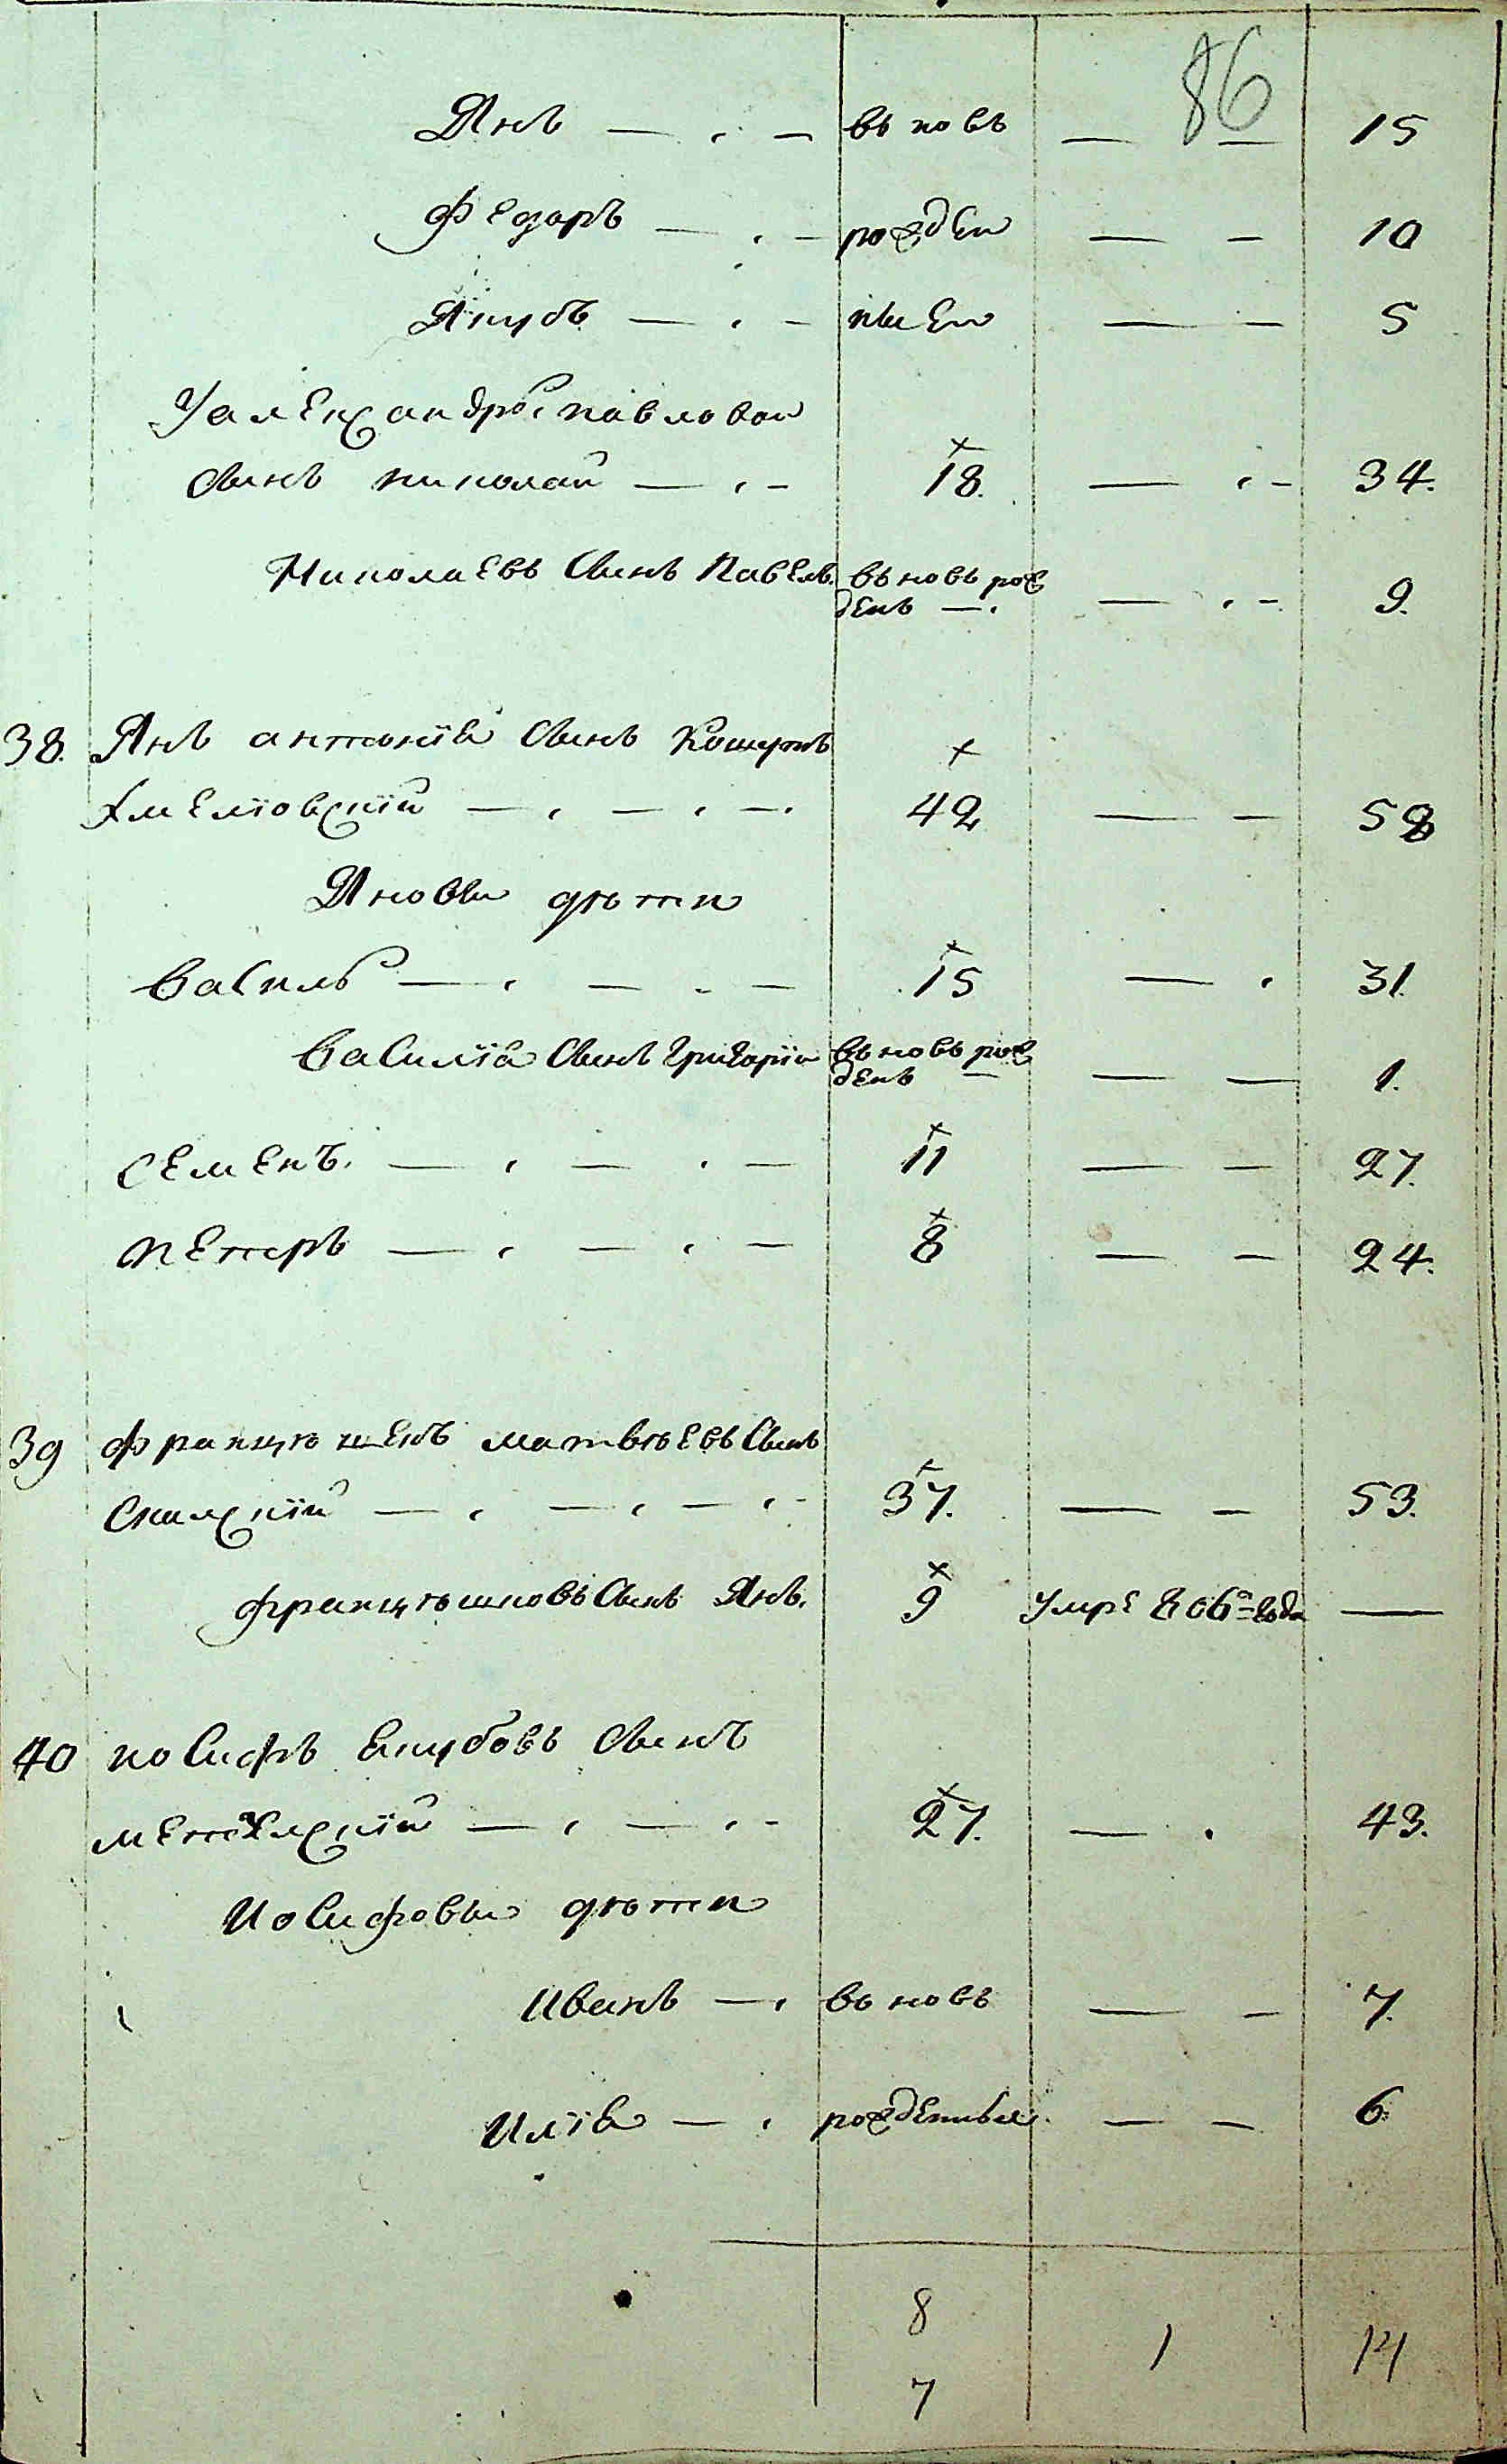 86
Янъ — вь новь — — 15
Федоръ — рожден — — 10
Якубъ — ные — — 5
У александра павлова
Сынъ николай — 18. — 34.
Николаевъ Сынъ Павелъ. вь новь рож
денъ — — 9.
38. Янъ антонія Сынъ Кошутъ
Хмелювскій — 42 — 58
Яновы дѣти
Василь — 15 — 31.
Василія Сынъ Григорій вь новь рож
денъ — — 1.
Семенъ. — 11 — 27.
петеръ — 8 — 24.
39 францѣшекъ матвѣевъ Сынъ
Скалскій — 37. — 53.
францѣшковъ Сынъ Янъ. 9 умре 806го года —
40 иосифъ Якубовъ Сынъ
— 27. — 43.
Иосифовы дѣти
Иванъ — вь новь — 7.
Илія — рожденные. — 6
8 1 14
7